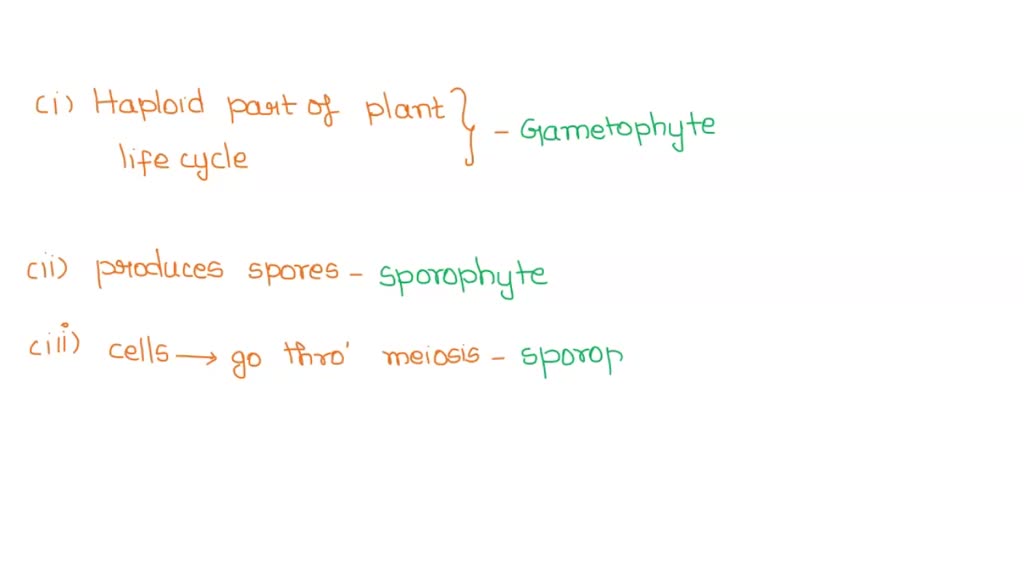 (i) Haploid part of plant } - Gametophyte
life cycle
(ii) produces spores - sporophyte
(iii) cells → go thro' meiosis - sporop